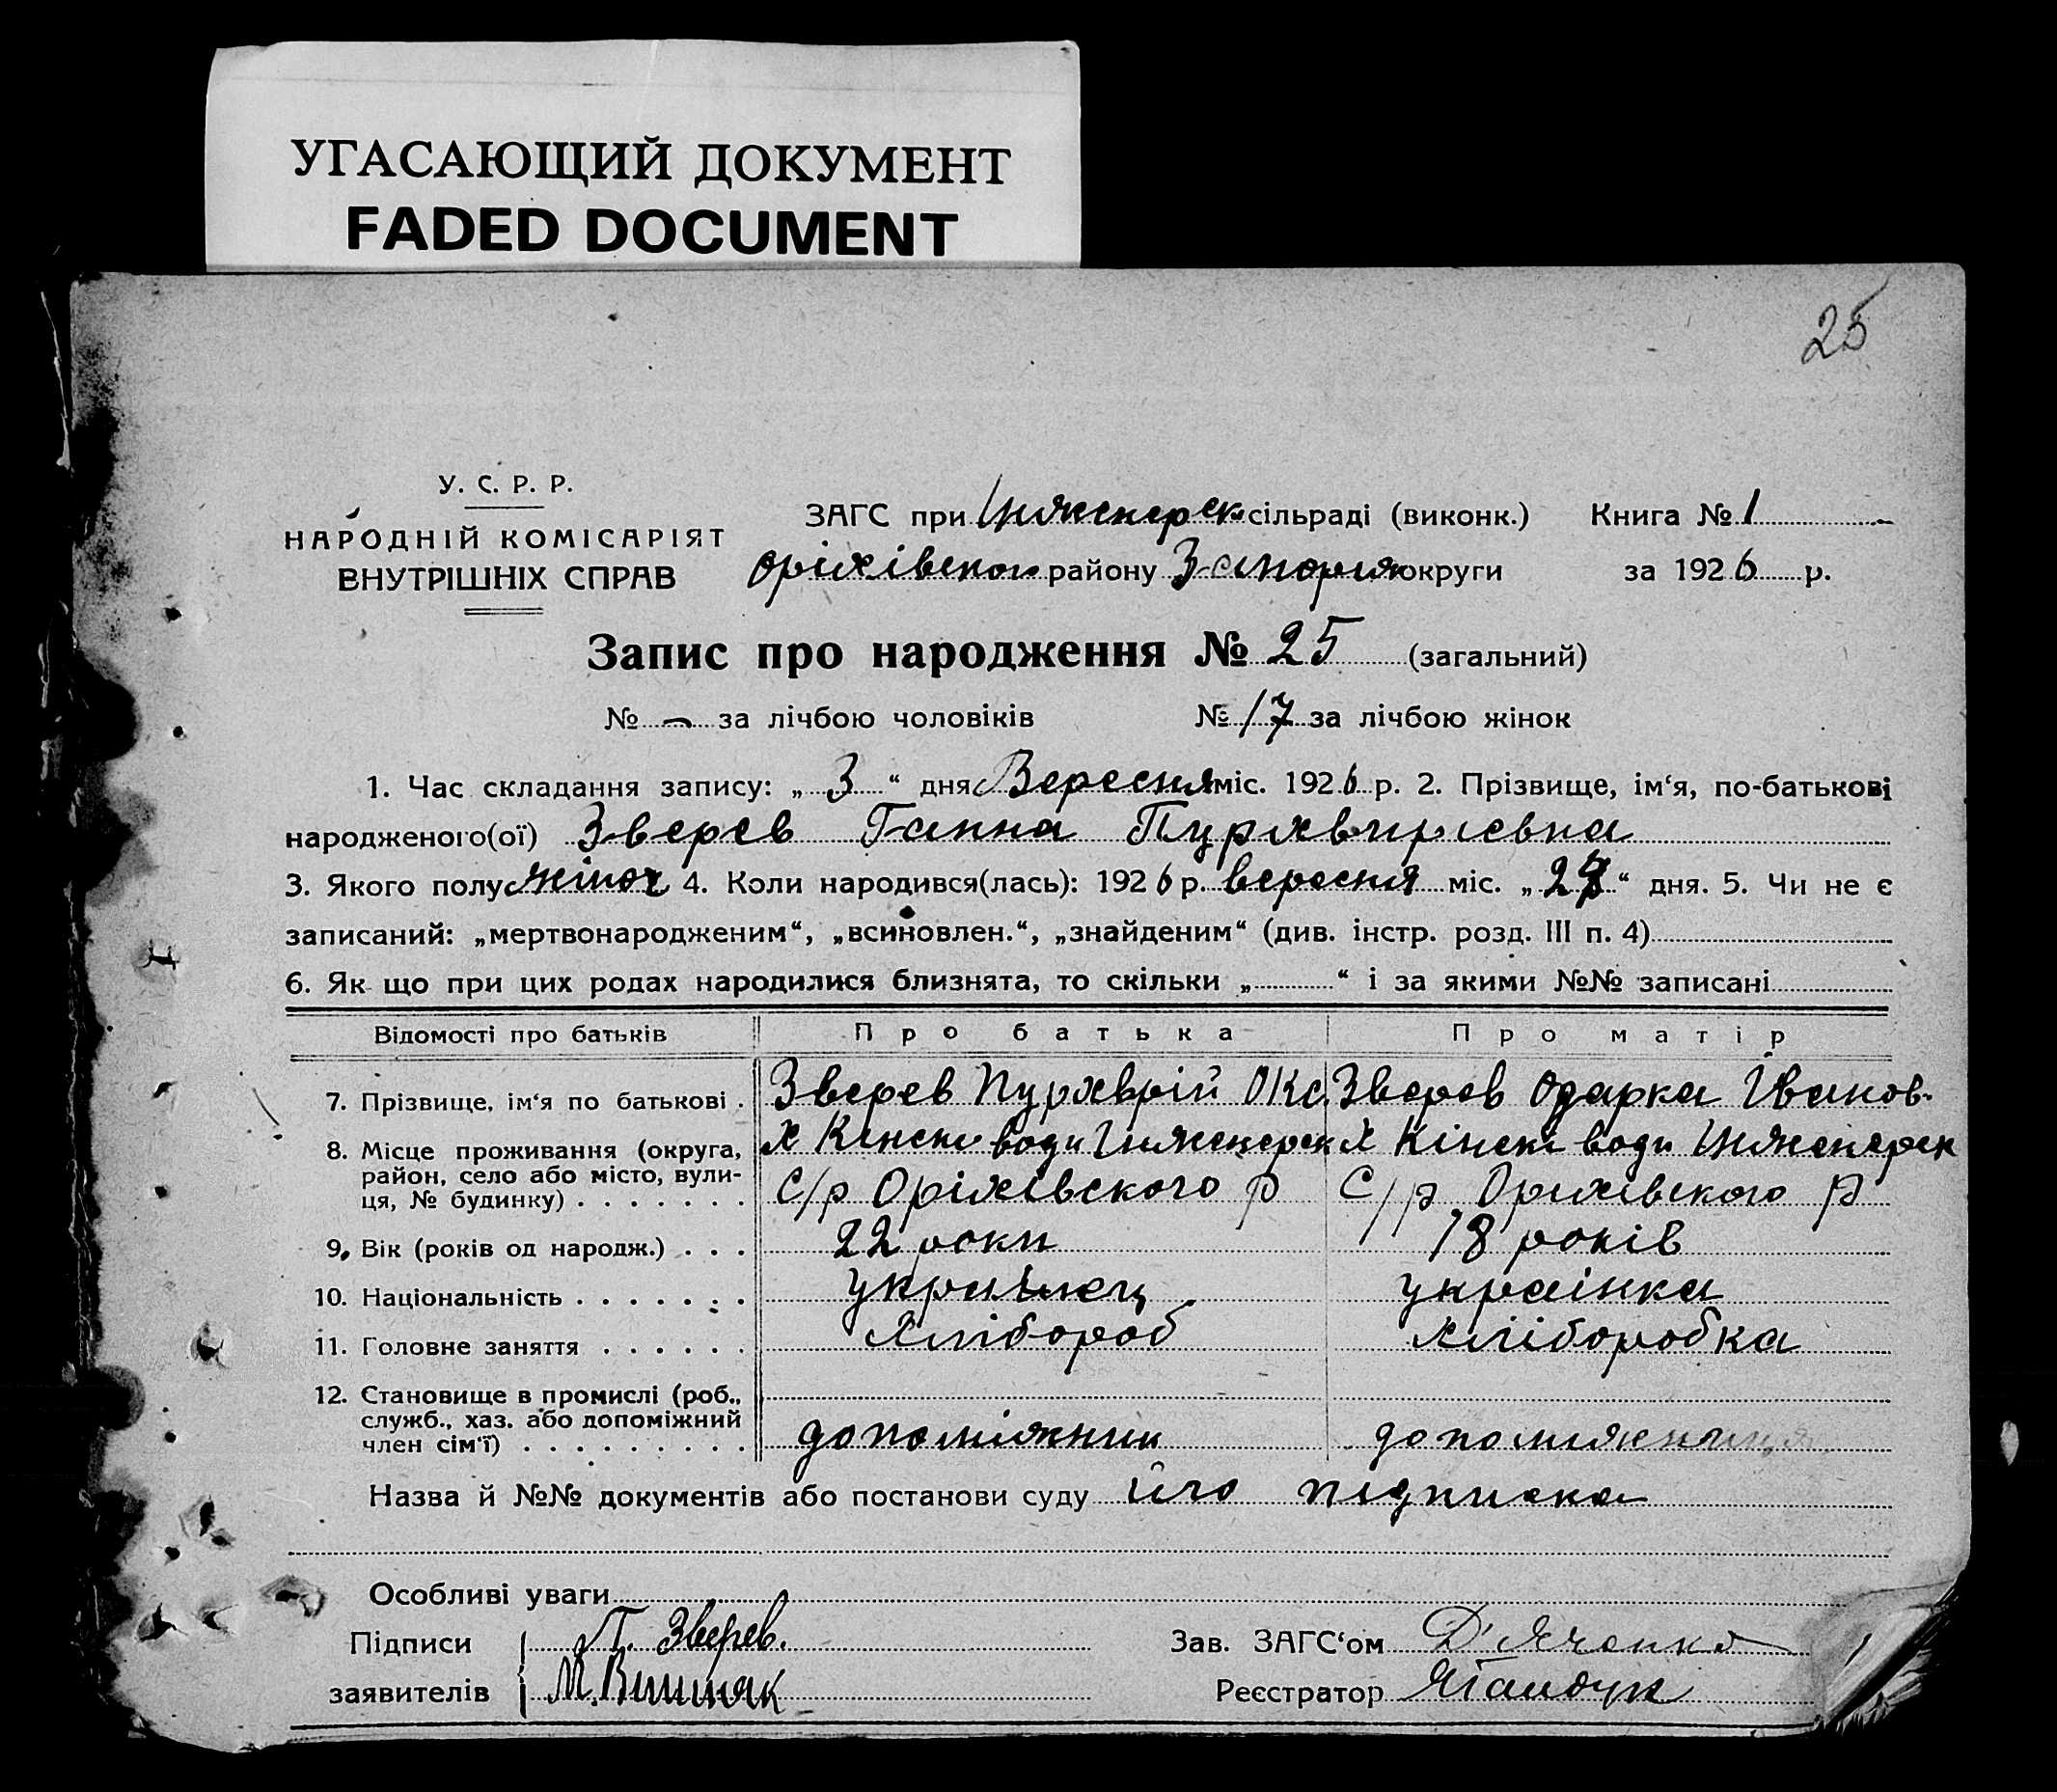 УГАСАЮЩИЙ ДОКУМЕНТ
FADED DOCUMENT
25
У. С. Р. Р.
НАРОДНІЙ КОМІСАРІЯТ
ВНУТРІШНІХ СПРАВ
ЗАГС при Инженерск сільраді (виконк.) Книга № 1
Оріхівского району Запоріж округи за 1926 р.
Запис про народження № 25 (загальний)
№ - за лічбою чоловіків № 17 за лічбою жінок
1. Час складання запису: „ 3 “ дня Вересня міс. 1926 р. 2. Прізвище, ім‘я, по-батькові
народженого(ої) Зверев Ганна
3. Якого полу жіноч 4. Коли народився(лась): 1926 р. вересня міс. „ “ дня. 5. Чи не є
записаний: „мертвонародженим“, „всиновлен.“, „знайденим“ (див. інстр. розд. III п. 4)
6. Як що при цих родах народилися близнята, то скільки „ “ і за якими №№ записані
Відомості про батьків Про батька Про матір
7. Прізвище, ім‘я по батькові . Зверев Окс. Зверев Одарка Іванов-
8. Місце проживання (округа, х Кінскі води Инженерск х Кінскі води Инженерск
район, село або місто, вули-
ця, № будинку) . . . . . . . С/р Оріхівского р С/р Оріхівского р
9, Вік (років од народж.) . . . 22 роки 18 років
10. Національність . . . . . . . українец українка
11. Головне заняття . . . . . . хлібороб хліборобка
12. Становище в промислі (роб.,
служб., хаз. або допоміжний
член сім‘ї) . . . . . . . . . . допоміжник допоміжниця
Назва й №№ документів або постанови суду його підписка
Особливі уваги
Підписи П. Зверев. Зав. ЗАГС‘ом Д'яченко
заявителів М. Вишняк Реєстратор